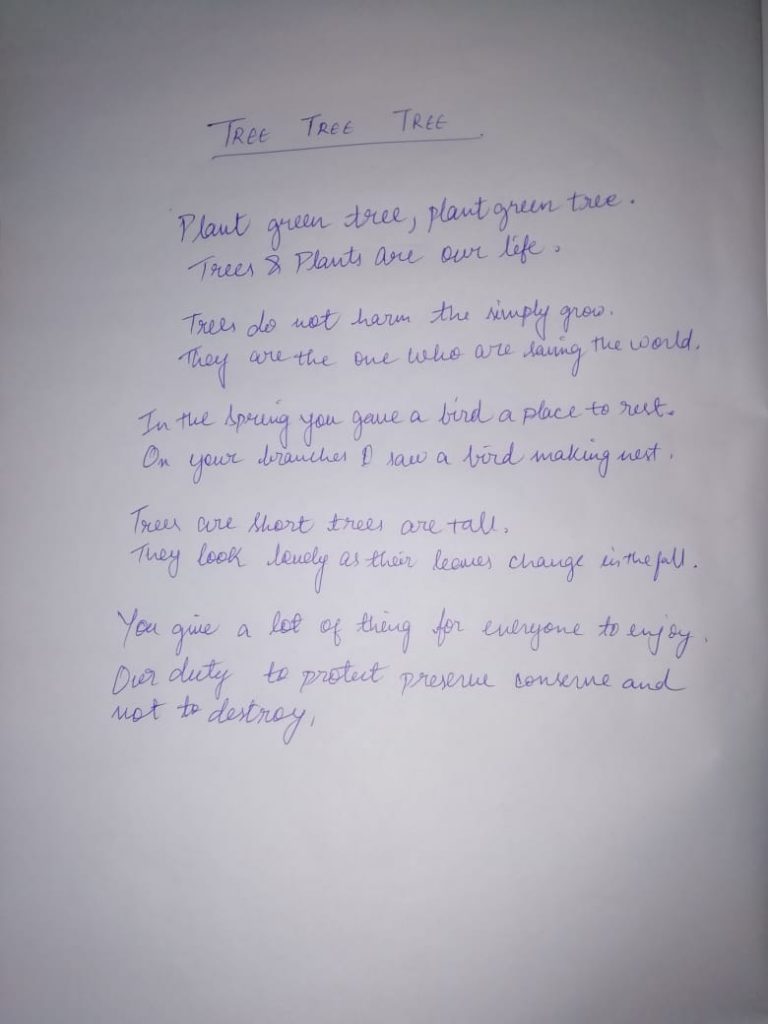 TREE TREE TREE
Plant green tree, plant green tree.
Trees & Plants are our life.
Trees do not harm the simply grow.
They are the one who are saving the world.
In the spring you gave a bird a place to rest.
On your branches I saw a bird making nest.
Trees are short trees are tall.
They look lovely as their leaves change in the fall.
You give a lot of thing for everyone to enjoy.
Our duty to protect preserve conserve and
not to destroy,